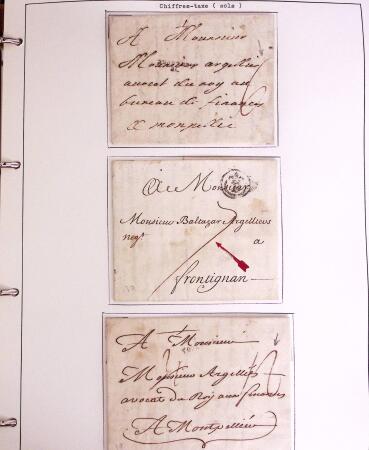 Chiffres-taxe ( sols )
A Monsieur
Monsieur argellies
avocat du roy au
bureau de finances
a monpellie
A Monsieur
Monsieur Baltazar Argelliers
negt.
a
frontignan
A Monsieur
Monsieur Argellies
avocat du Roy aux finances
A Montpellier